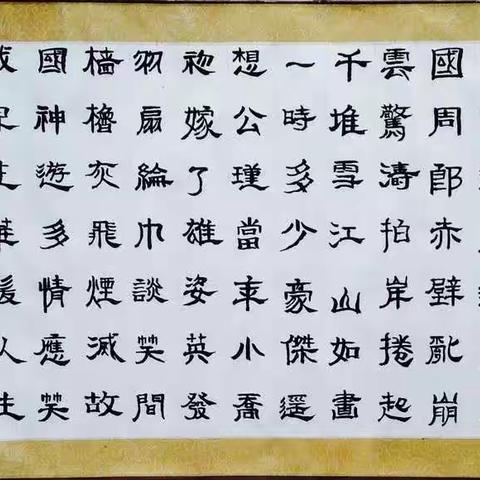 國周郎赤壁亂崩
雲驚濤拍岸捲起
千堆雪江山如畫
一時多少豪傑遥
想公瑾當年小喬
初嫁了雄姿英發
羽扇綸巾談笑間
檣櫓灰飛煙滅故
國神遊多情應笑
我早生華髮人生